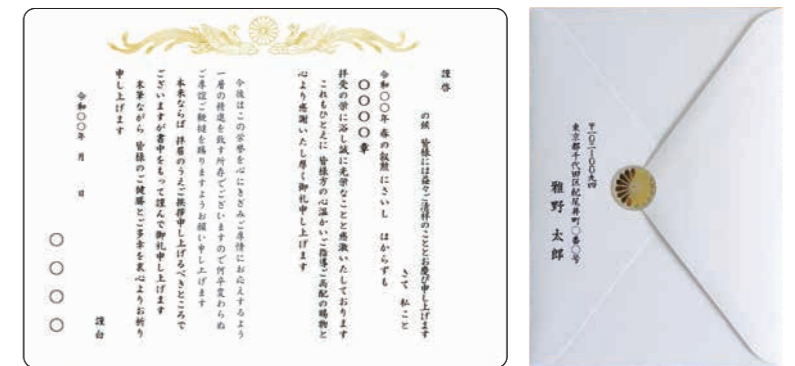 謹啓
の候 皆様には益々ご清祥のこととお慶び申し上げます
さて 私こと
令和〇〇年 春の叙勲にさいし はからずも
〇〇〇〇章
拝受の栄に浴し誠に光栄なことと感激いたしております
これもひとえに 皆様方の心温かいご指導ご高配の賜物と
心より感謝いたし厚く御礼申し上げます
今後はこの栄誉を心にきざみご厚情にお応えするよう
一層の精進を致す所存でございますので何卒変わらぬ
ご厚誼ご鞭撻を賜りますようお願い申し上げます
本来ならば 拝眉のうえご挨拶申し上げるべきところで
ございますが書中をもって謹んで御礼申し上げます
末筆ながら 皆様のご健勝とご多幸を衷心よりお祈り
申し上げます
謹白
令和〇〇年 月 日
〇〇〇〇
〒一〇二-〇〇九四
東京都千代田区紀尾井町〇番〇号
雅野 太郎